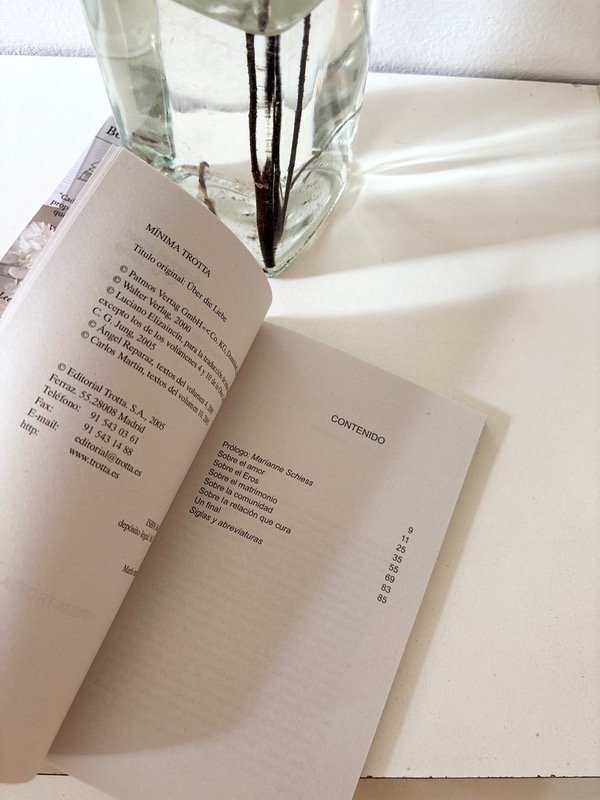 MÍNIMA TROTTA
Título original: Über die Liebe
© Patmos Vertag GmbH+<Co. KG,
© Walter Verlag, 2000
© Luciano Elizaincín, para la traducción de
excepto los de los volúmenes 4 y 10 de la
C. G. Jung, 2005
© Ángel Reparaz, textos del volumen 4,
© Carlos Martín, textos del volumen 10,
© Editorial Trotta. S.A., 2005
Ferraz. 55.28008 Madrid
Teléfono: 91 543 03 61
Fax: 91 543 14 88
E-mail: editorial@trotta.es
http: www.trotta.es
depósito legal
CONTENIDO
Prólogo: Marianne Schiess 9
Sobre el amor 11
Sobre el Eros 25
Sobre el matrimonio 35
Sobre la comunidad 55
Sobre la relación que cura 69
Un final 83
Siglas y abreviaturas 85